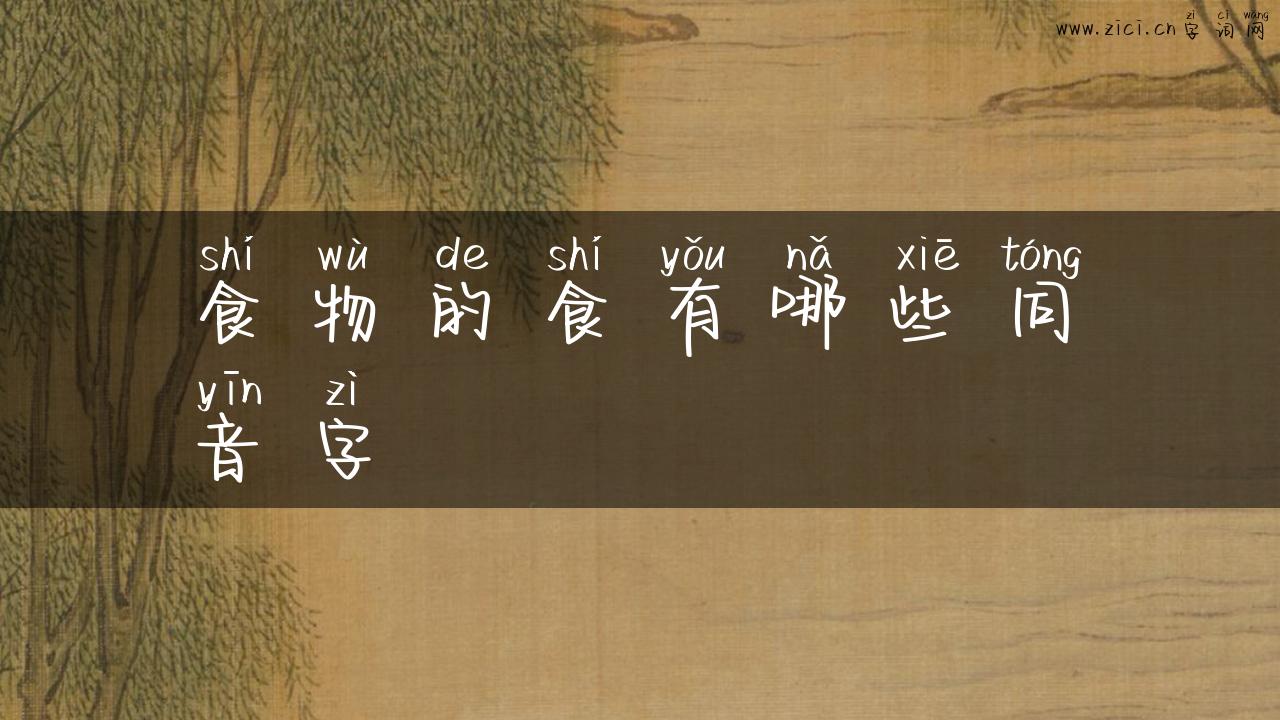 zì cí wǎng
www.zici.cn 字词网
shí wù de shí yǒu nǎ xiē tóng
食物的食有哪些同
yīn zì
音字